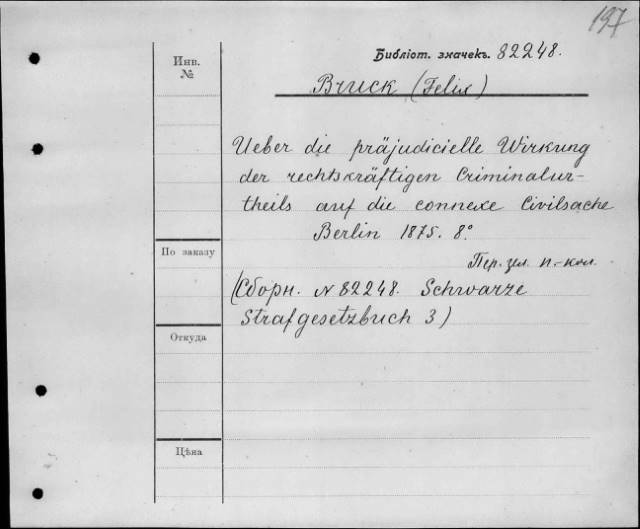 197
Инв. №
Библіот. значекъ. 82248.
Bruck (Felix)
Ueber die präjudicielle Wirkung
der rechtskräftigen Criminalur-
theils auf die connexe Civilsache
Berlin 1875. 8°
По заказу
Пер. зел. п.-кол.
(Сборн. № 82248. Schwarze
Strafgesetzbuch 3)
Откуда
Цѣна